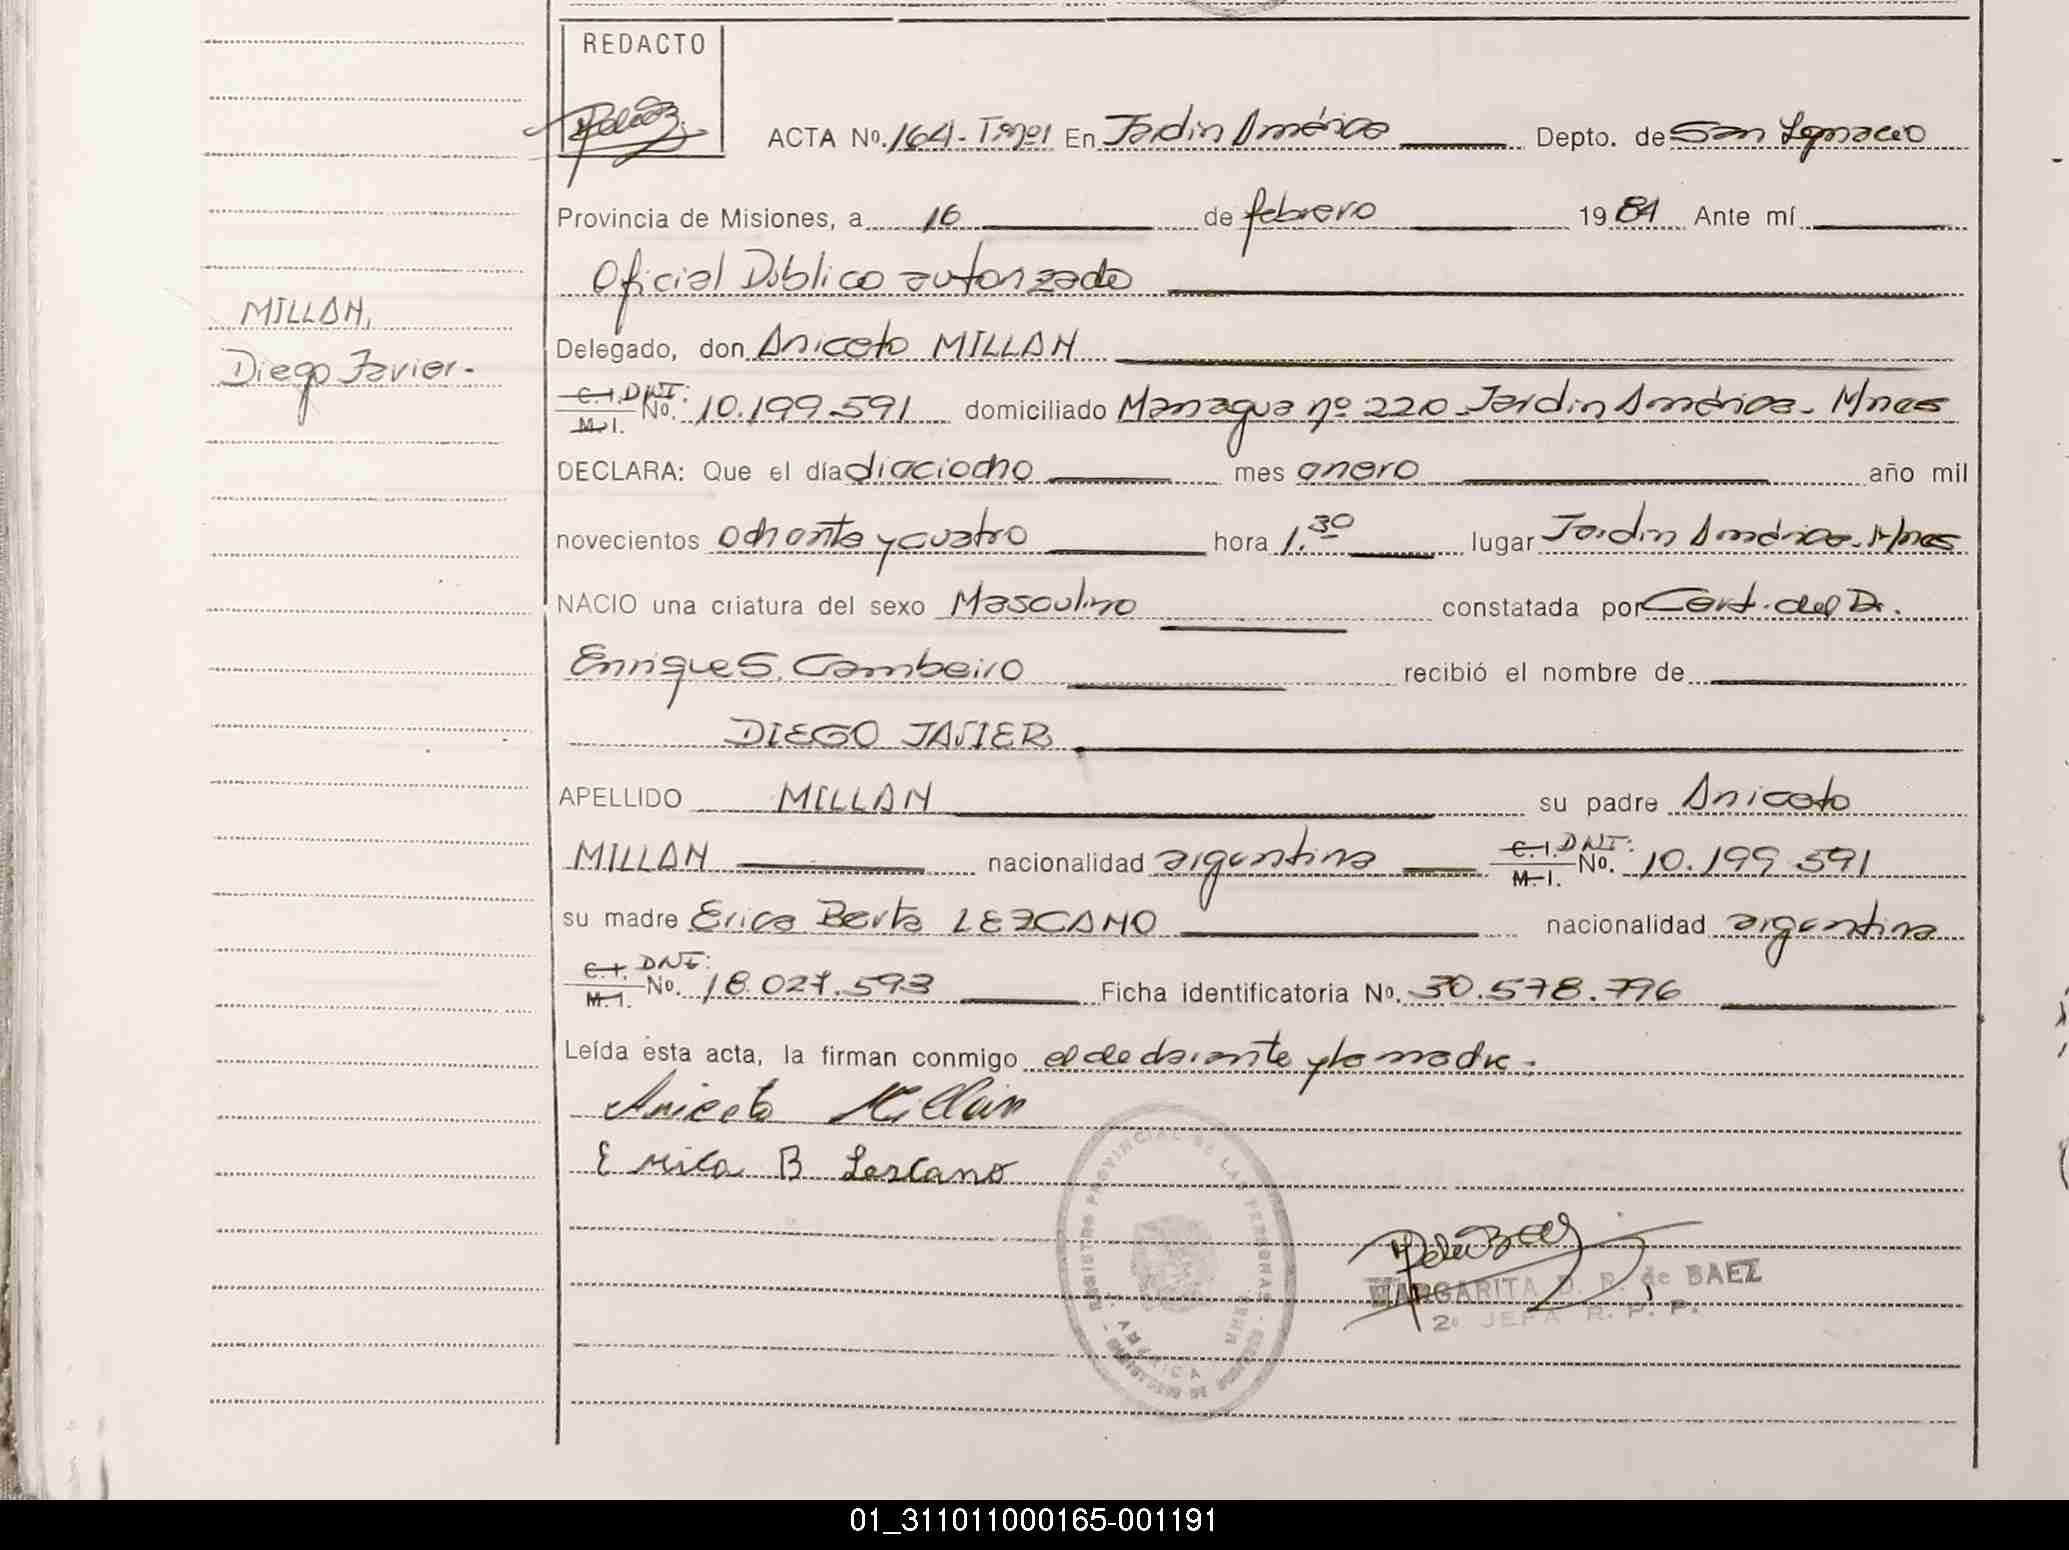 REDACTO
ACTA Nº. 164 - Tmo1 En Jardin América Depto. de San Ignacio
Provincia de Misiones, a 16 de febrero 1984 Ante mí
Oficial Público autorizado
MILLAN,
Delegado, don Aniceto MILLAN
Diego Javier.-
C.I. DNI:
M.I. No. 10.199.591 domiciliado Managua nº 220 Jardin América. Mnes
DECLARA: Que el día dieciocho mes enero año mil
novecientos ochenta y cuatro hora 1.30 lugar Jardin América. Mnes
NACIO una criatura del sexo Masculino constatada por Cert. del Dr.
Enrique S. Cambeiro recibió el nombre de
DIEGO JAVIER
APELLIDO MILLAN su padre Aniceto
MILLAN nacionalidad argentina C.I. DNI: M.I. No. 10.199.591
su madre Erica Berta LEZCANO nacionalidad argentina
C.I. DNI:
M.I. No. 18.027.593 Ficha identificatoria No. 30.578.796
Leída esta acta, la firman conmigo el declarante y la madre.
Aniceto Millan
Erica B Lescano
REGISTRO PROVINCIAL DE LAS PERSONAS
AMERICA
MARGARITA D. P. de BAEZ
2º JEFA R. P. P.
01_311011000165-001191